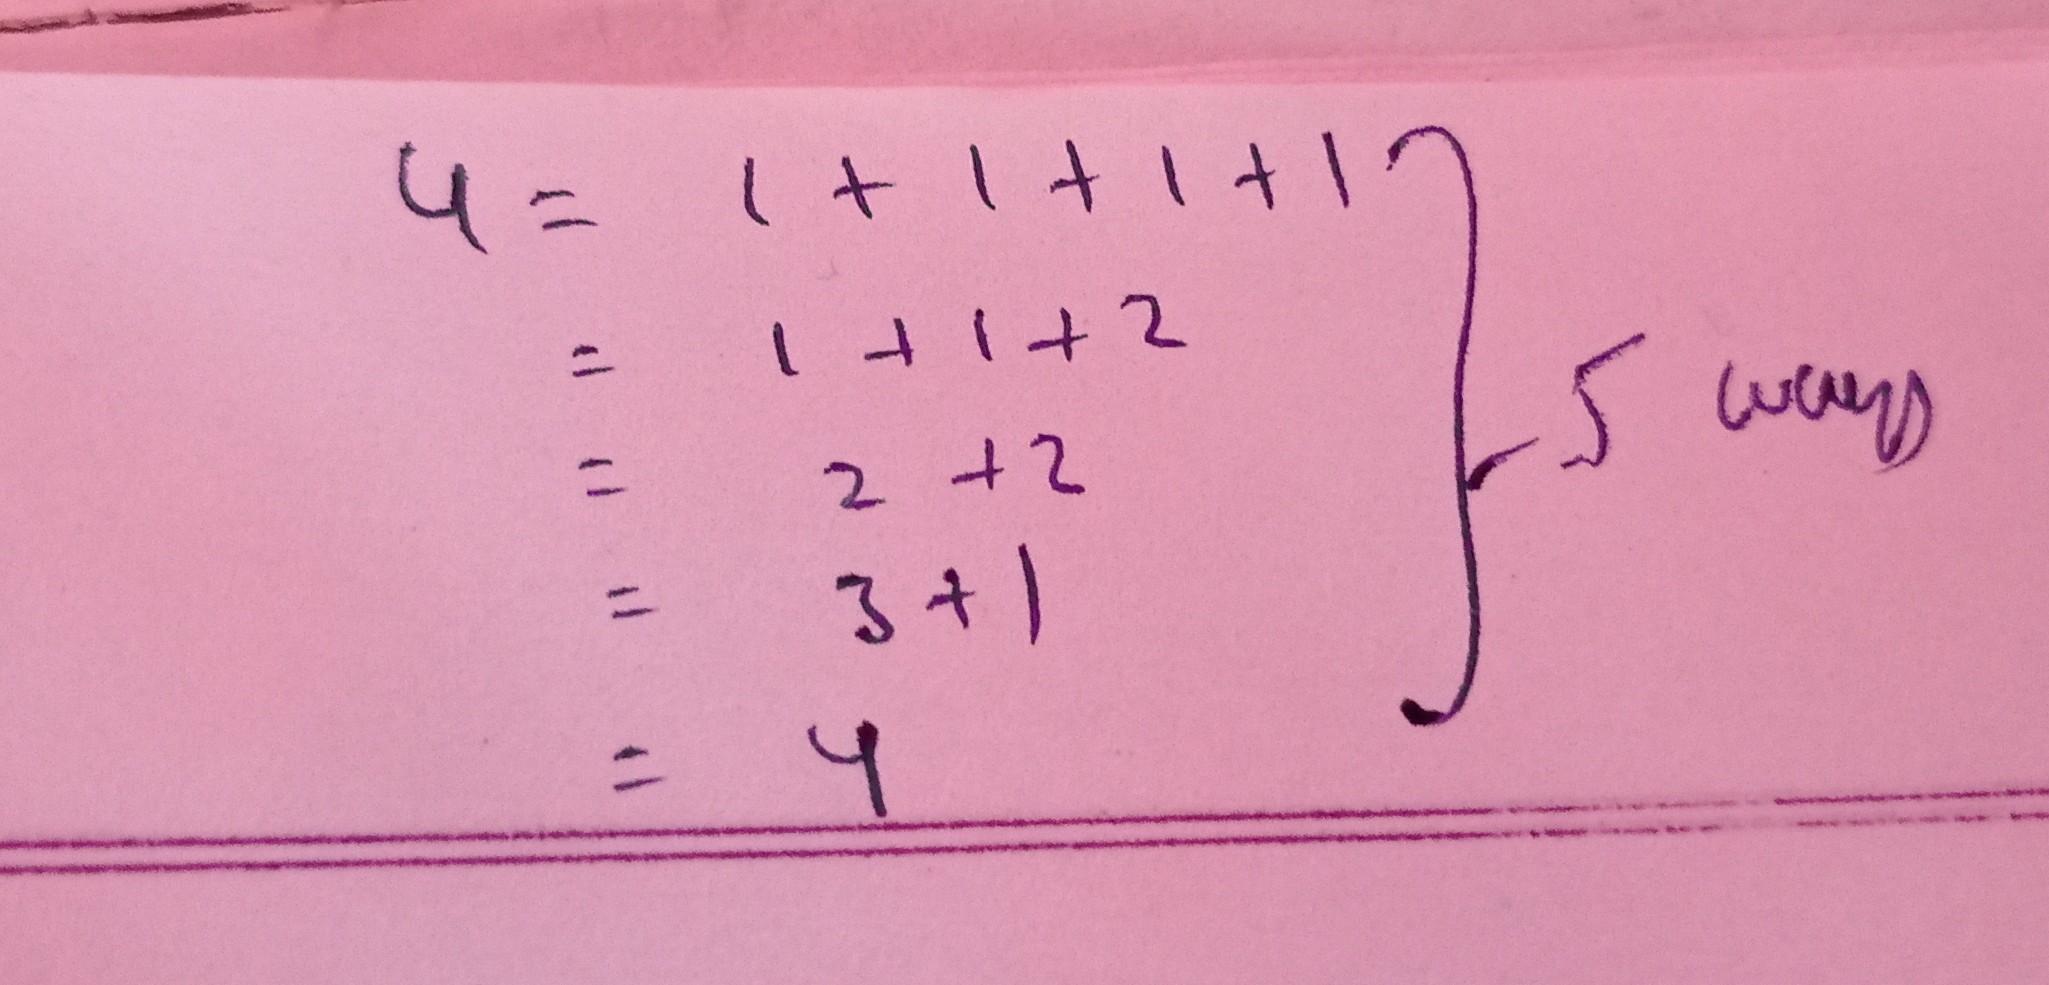 4 = 1 + 1 + 1 + 1
= 1 + 1 + 2
= 2 + 2
= 3 + 1
= 4
5 ways